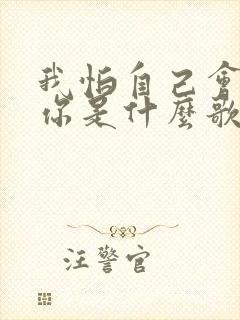 我怕自己會
你是什麼歌
汪警官